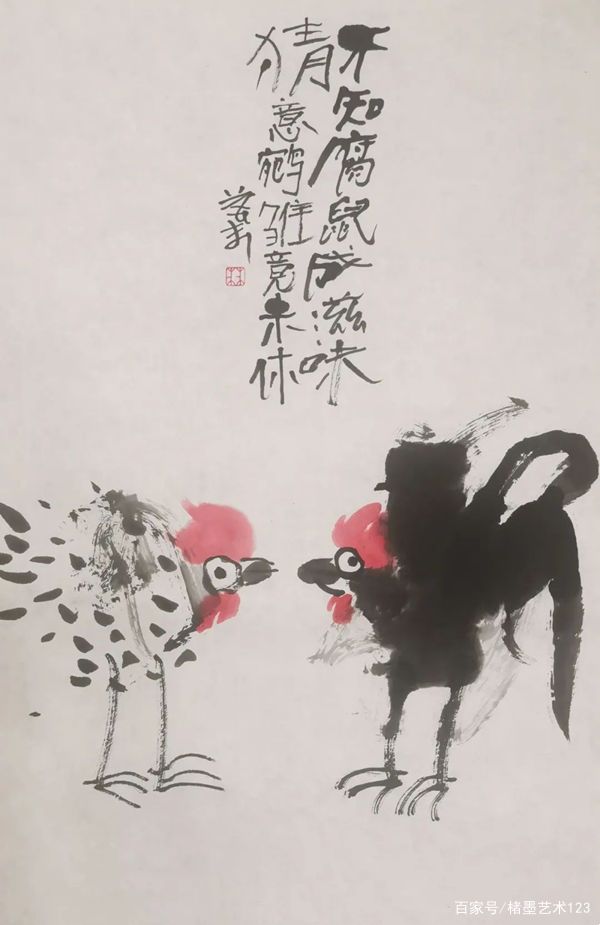 不知腐鼠成滋味
猜意鹓雏竟未休
百家号/楮墨艺术123